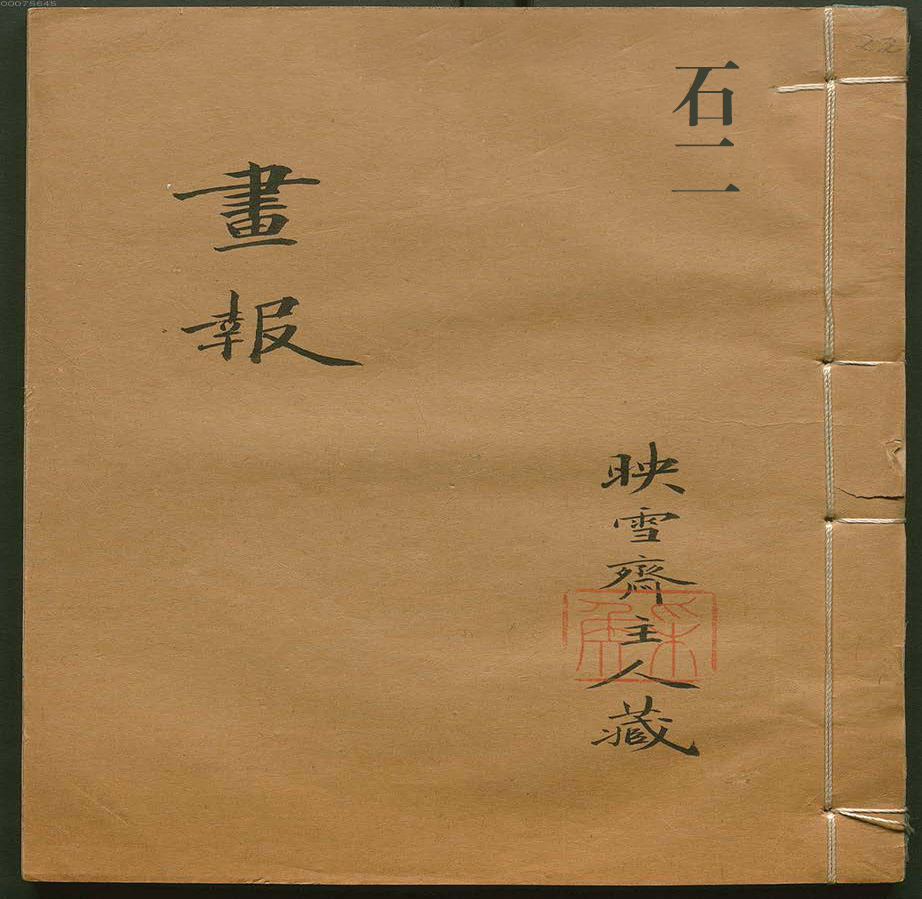 00075645
石二
畫報
映雪齋主人藏